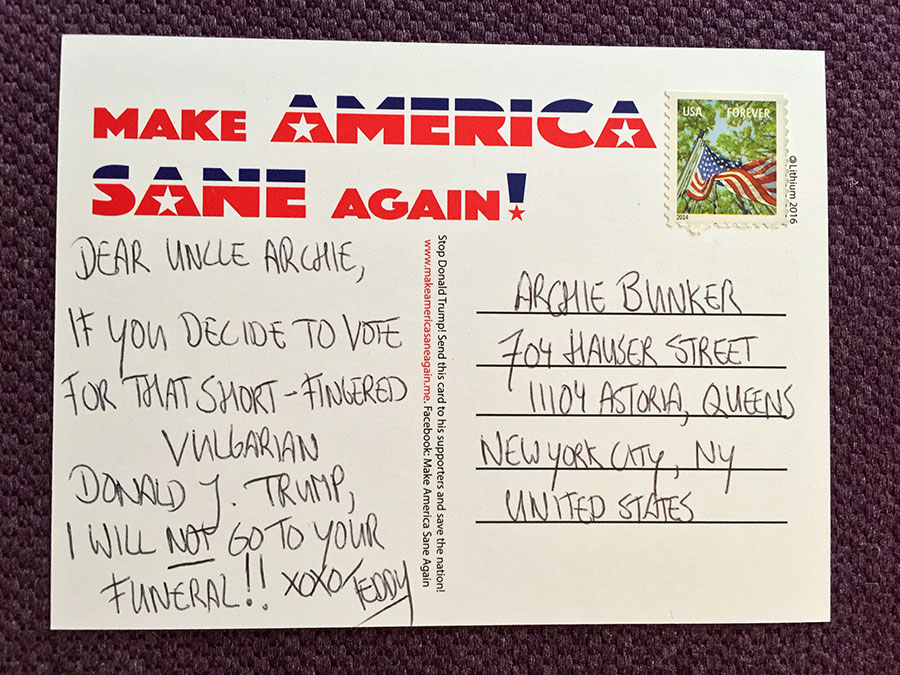 MAKE AMERICA
SANE AGAIN!
USA FOREVER
2014
© Lithium 2016
DEAR UNCLE ARCHIE,
IF YOU DECIDE TO VOTE
FOR THAT SHORT-FINGERED
VULGARIAN
DONALD J. TRUMP,
I WILL NOT GO TO YOUR
FUNERAL!! XOXO/TEDDY
Stop Donald Trump! Send this card to his supporters and save the nation!
www.makeamericasaneagain.me. Facebook: Make America Sane Again
ARCHIE BUNKER
704 HAUSER STREET
11104 ASTORIA, QUEENS
NEW YORK CITY, NY
UNITED STATES